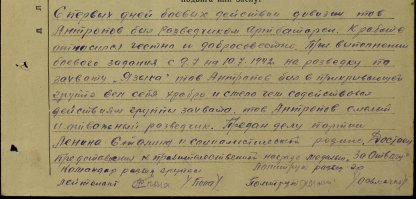 С первых дней боевых действий дивизии тов
Антропов был разведчиком артбатареи. К работе
относился честно и добросовестно. При выполнении
боевого задания с 9.7 на 10.7.1942. на разведку по
захвату "Языка" тов Антропов был в прикрывающей
группе вел себя храбро и смело чем содействовал
действиям группы захвата. тов Антропов смелый
и отважный разведчик. Предан делу партии
Ленина Сталина и социалистической родине. Достоин
представления к правительственной награде медали "За Отвагу"
Командир развед Политрук развед
лейтенант /Попов/ Политрук